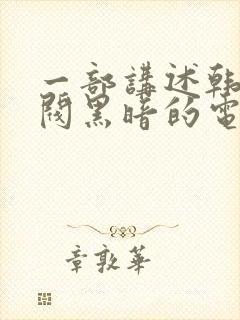 一部講述韩
閥黑暗的電
章敦華